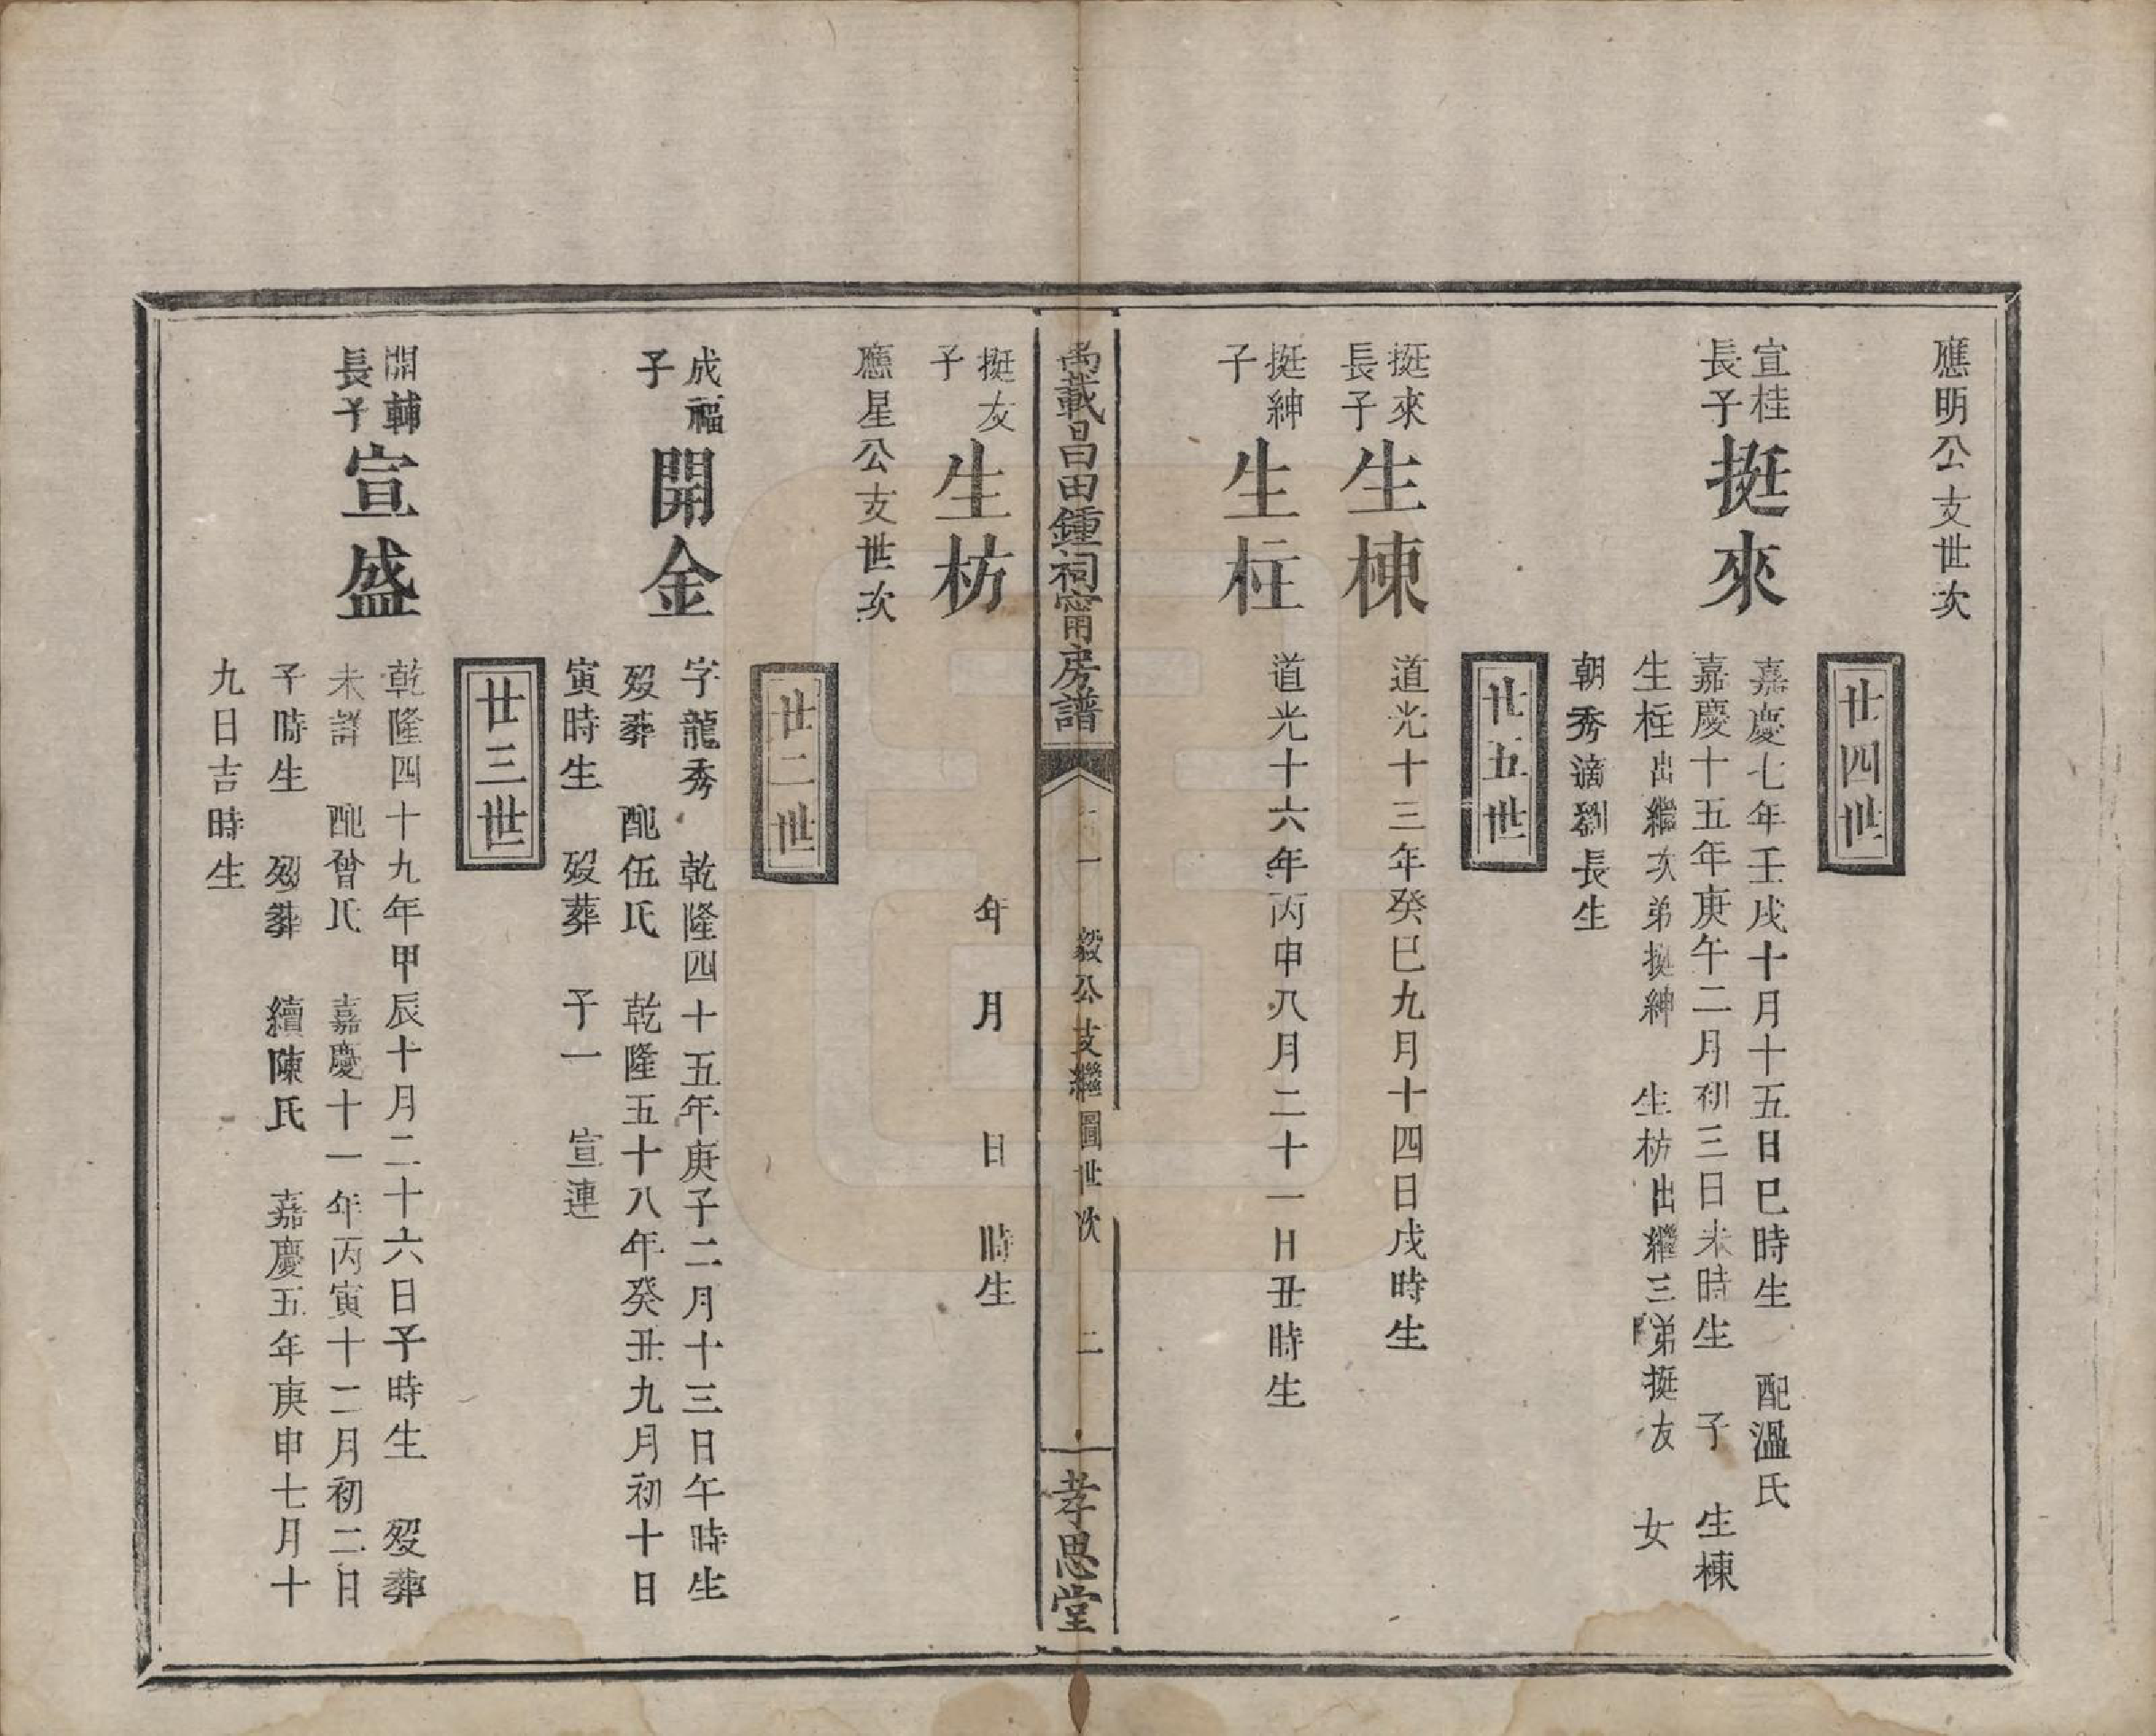 應明公支世次
廿四世
宣桂
長子
挺來
嘉慶七年壬戌十月十五日巳時生　配溫氏
嘉慶十五年庚午二月初三日未時生　子　生棟
生枉出繼次弟挺紳　生枋出繼三弟挺友　女
朝秀適劉長生
廿五世
挺來
長子
生棟
道光十三年癸巳九月十四日戌時生
挺紳
子
生枉
道光十六年丙申八月二十一日丑時生
萬載昌田鍾祠甯房譜
毅公支繼圖世次　二
孝思堂
挺友
子
生枋
年　月　日　時生
應星公支世次
廿二世
成福
子
開金
字龍秀　乾隆四十五年庚子二月十三日午時生
歿葬　配伍氏　乾隆五十八年癸丑九月初十日
寅時生　歿葬　子一　宣連
廿三世
開輔
長子
宣盛
乾隆四十九年甲辰十月二十六日子時生　歿葬
未詳　配曾氏　嘉慶十一年丙寅十二月初二日
子時生　歿葬　續陳氏　嘉慶五年庚申七月十
九日吉時生